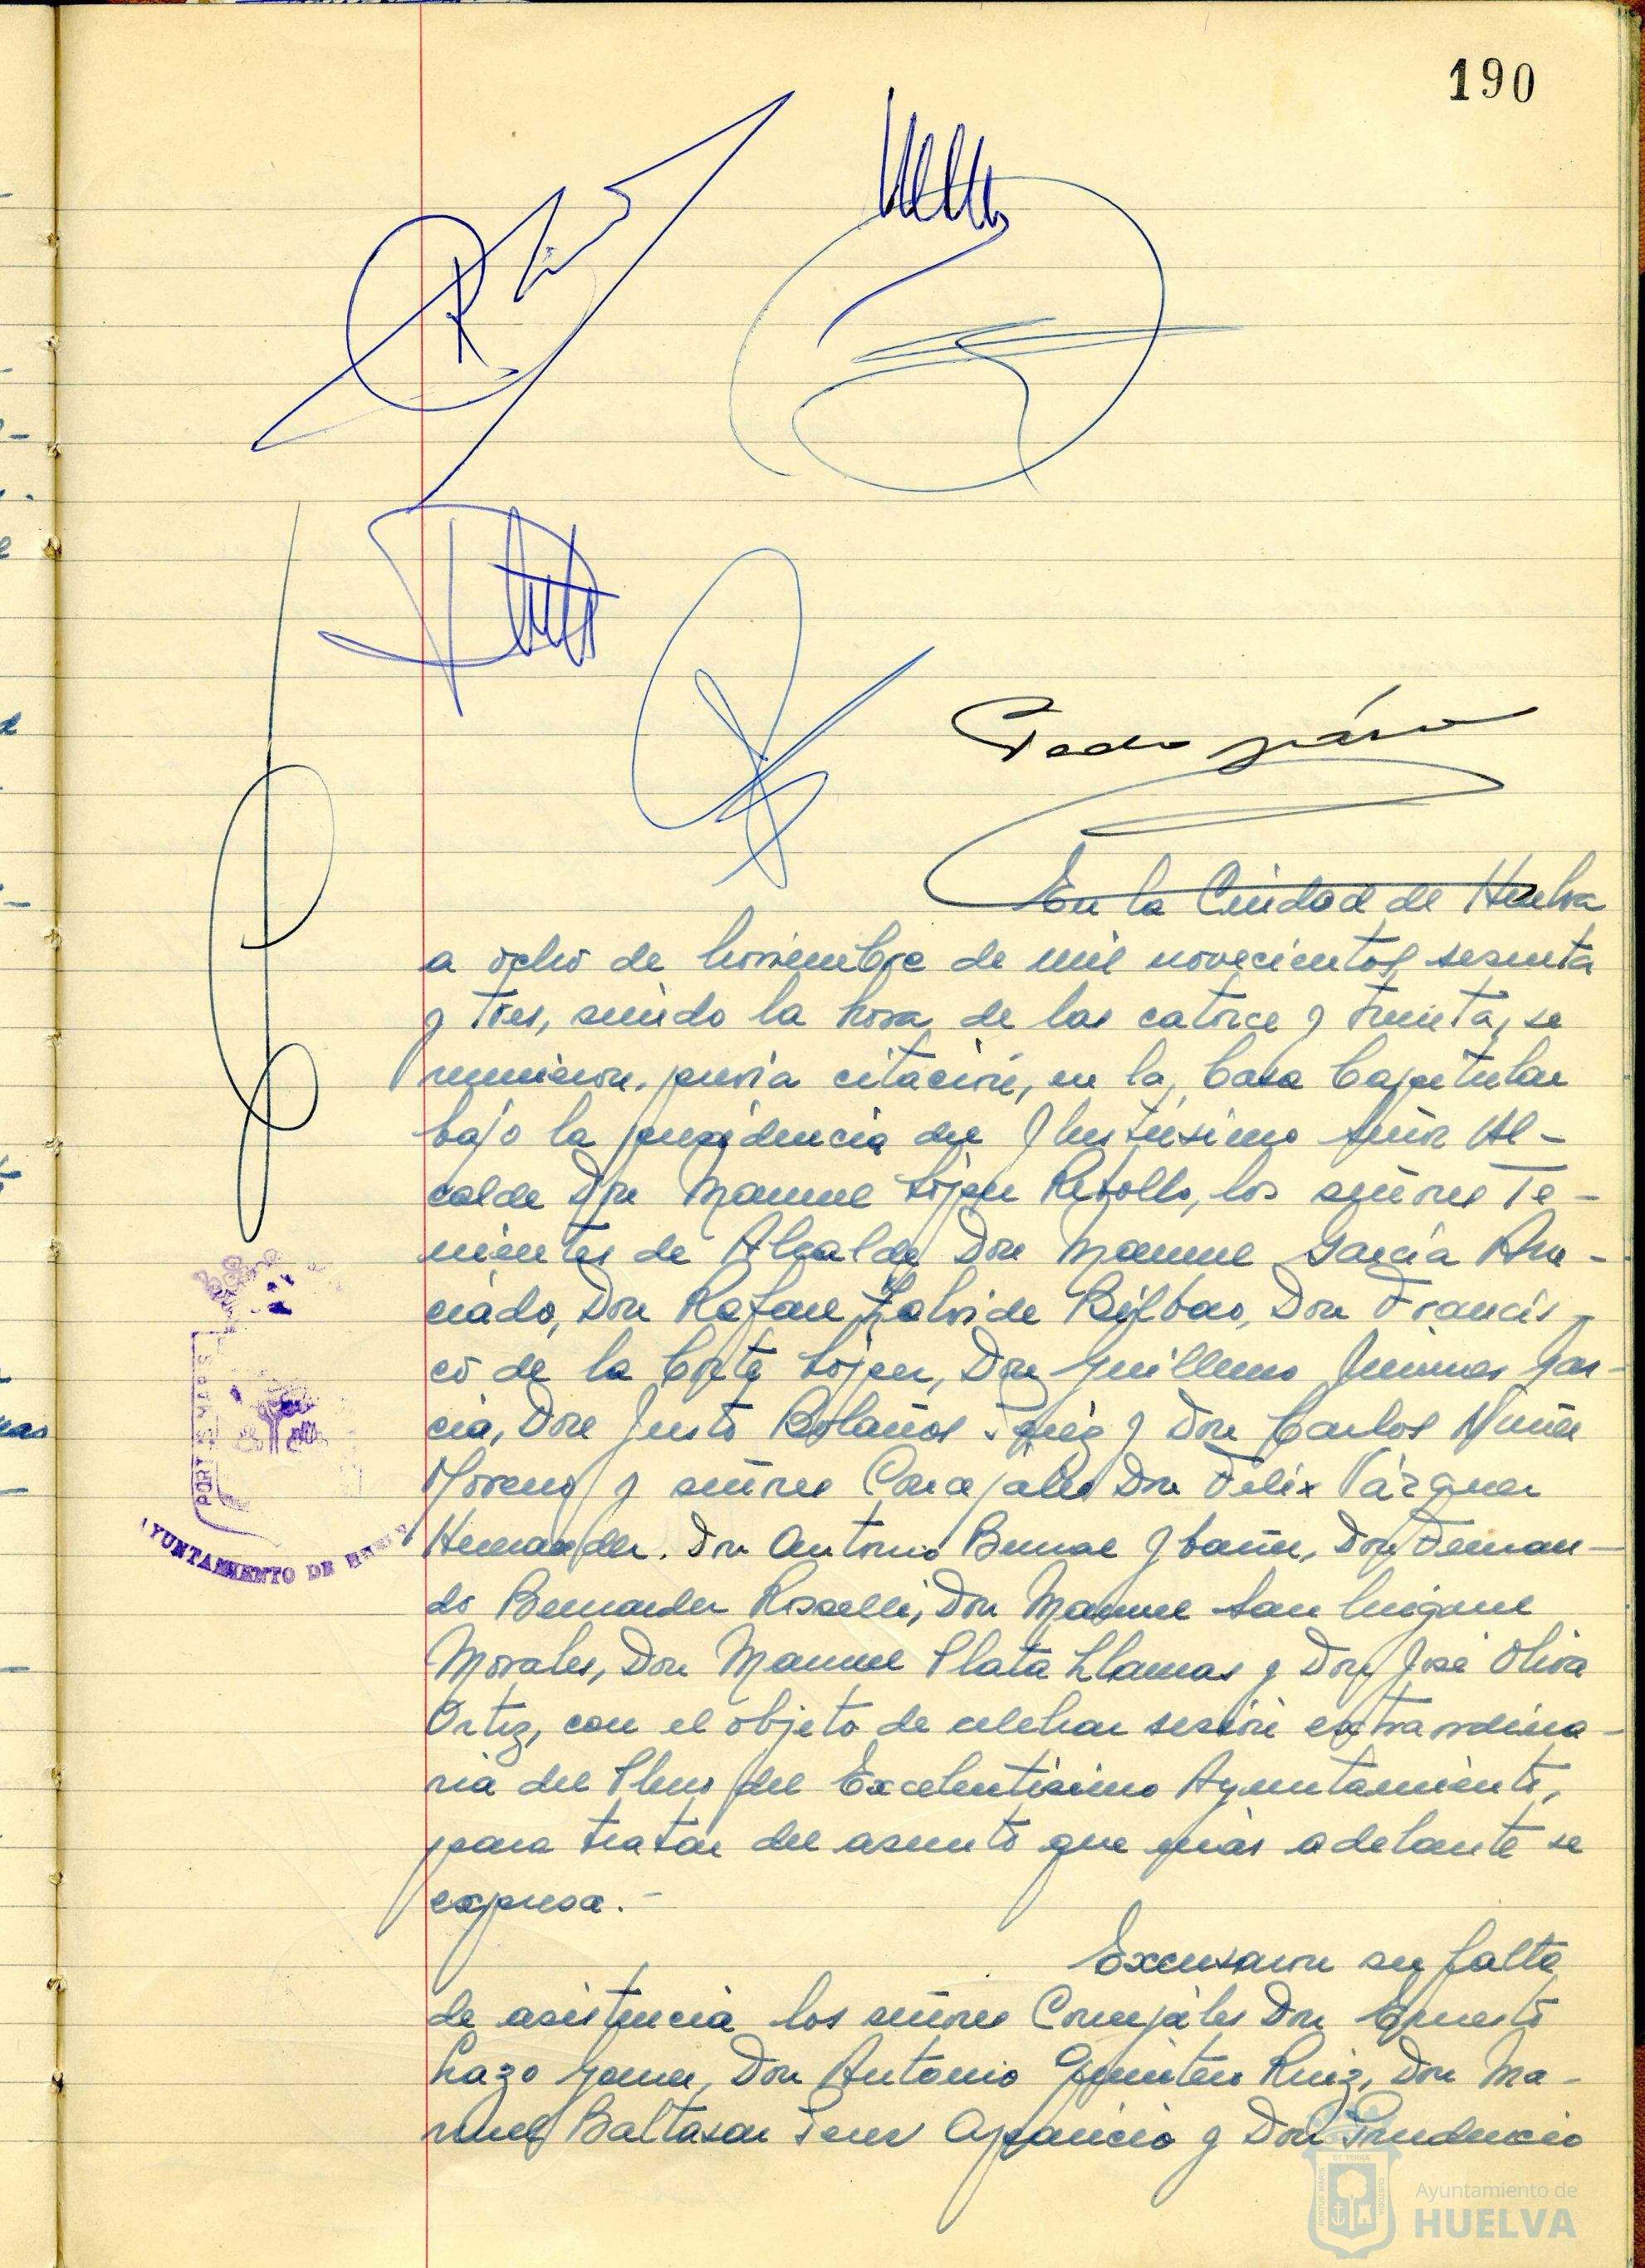 190
En la Ciudad de Huelva
a ocho de noviembre de mil novecientos sesenta
y tres, siendo la hora de las catorce y treinta, se
reunieron, previa citación, en la Casa Capitular
bajo la presidencia del Ilustrísimo señor Al-
calde Don Manuel López Rebollo, los señores Te-
nientes de Alcalde Don Manuel García Anu-
ciado, Don Rafael Bilbao, Don Francis-
co de la Corte López, Don Guillermo Jiménez Gar-
cía, Don Justo Bolaños y Don Carlos Núñez
Moreno y señores Concejales Don Félix Vázquez
Hernández. Don Antonio Bernal Ybáñez, Don Fernan-
do Bernardez Rosselli, Don Manuel San Miguel
Morales, Don Manuel Plata Llamas y Don José Oliva
Ortiz, con el objeto de celebrar sesión extraordina-
ria del Pleno del Excelentísimo Ayuntamiento,
para tratar del asunto que más adelante se
expresa.-
Excusaron su falta
de asistencia los señores Concejales Don Ernesto
Lazo Gómez, Don Antonio Quintero Ruiz, Don Ma-
nuel Baltasar Pérez Aparicio y Don Prudencio
AYUNTAMIENTO DE HUELVA
Ayuntamiento de
HUELVA